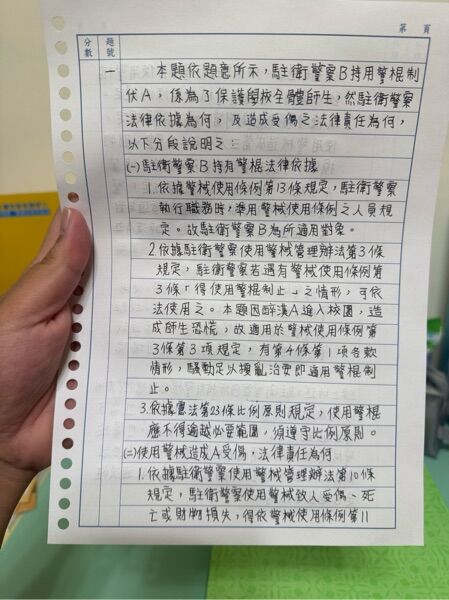 第 頁
分數
題號
一 本題依題意所示，駐衛警察B持用警棍制
伏A，係為了保護學校全體師生，然駐衛警察
法律依據為何，及造成受傷之法律責任為何，
以下分段說明之：
(一)駐衛警察B持有警棍法律依據
1.依據警械使用條例第13條規定，駐衛警察
執行職務時，準用警械使用條例之人員規
定。故駐衛警察B為所適用對象。
2.依據駐衛警察使用警械管理辦法第3條
規定，駐衛警察若遇有警械使用條例第
3條「得使用警棍制止」之情形，可依
法使用之。本題因醉漢A進入校園，造
成師生恐慌，故適用於警械使用條例第
3條第3項規定，有第4條第1項各款
情形，騷動足以擾亂治安即適用警棍制
止。
3.依據憲法第23條比例原則規定，使用警棍
應不得逾越必要範圍，須遵守比例原則。
(二)使用警械造成A受傷，法律責任為何
1.依據駐衛警察使用警械管理辦法第10條
規定，駐衛警察使用警械致人受傷、死
亡或財物損失，得依警械使用條例第11